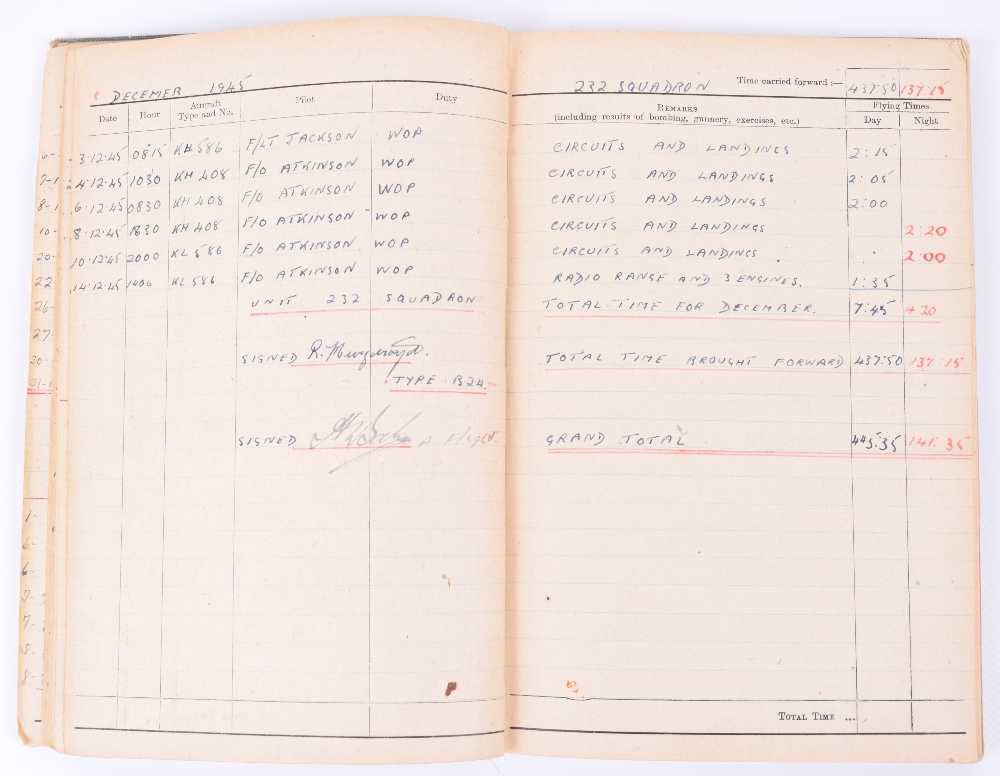 DECEMER 1945
232 SQUADRON Time carried forward :— 437:50 137:15
Date Hour Aircraft Type and No. Pilot Duty REMARKS (including results of bombing, gunnery, exercises, etc.) Flying Times Day Night
3·12·45 0815 KH586 F/LT JACKSON WOP CIRCUITS AND LANDINGS 2:15
4·12·45 1030 KH408 F/O ATKINSON WOP CIRCUITS AND LANDINGS 2:05
6·12·45 0830 KH408 F/O ATKINSON WOP CIRCUITS AND LANDINGS 2:00
8·12·45 1830 KH408 F/O ATKINSON WOP CIRCUITS AND LANDINGS 2:20
10·12·45 2000 KL586 F/O ATKINSON WOP CIRCUITS AND LANDINGS 2:00
14·12·45 1400 KL586 F/O ATKINSON WOP RADIO RANGE AND 3 ENGINES. 1:35
UNIT 232 SQUADRON TOTAL TIME FOR DECEMBER. 7:45 4·20
SIGNED TOTAL TIME BROUGHT FORWARD 437:50 137:15
TYPE B24.
SIGNED GRAND TOTAL 445:35 141:35
TOTAL TIME ...